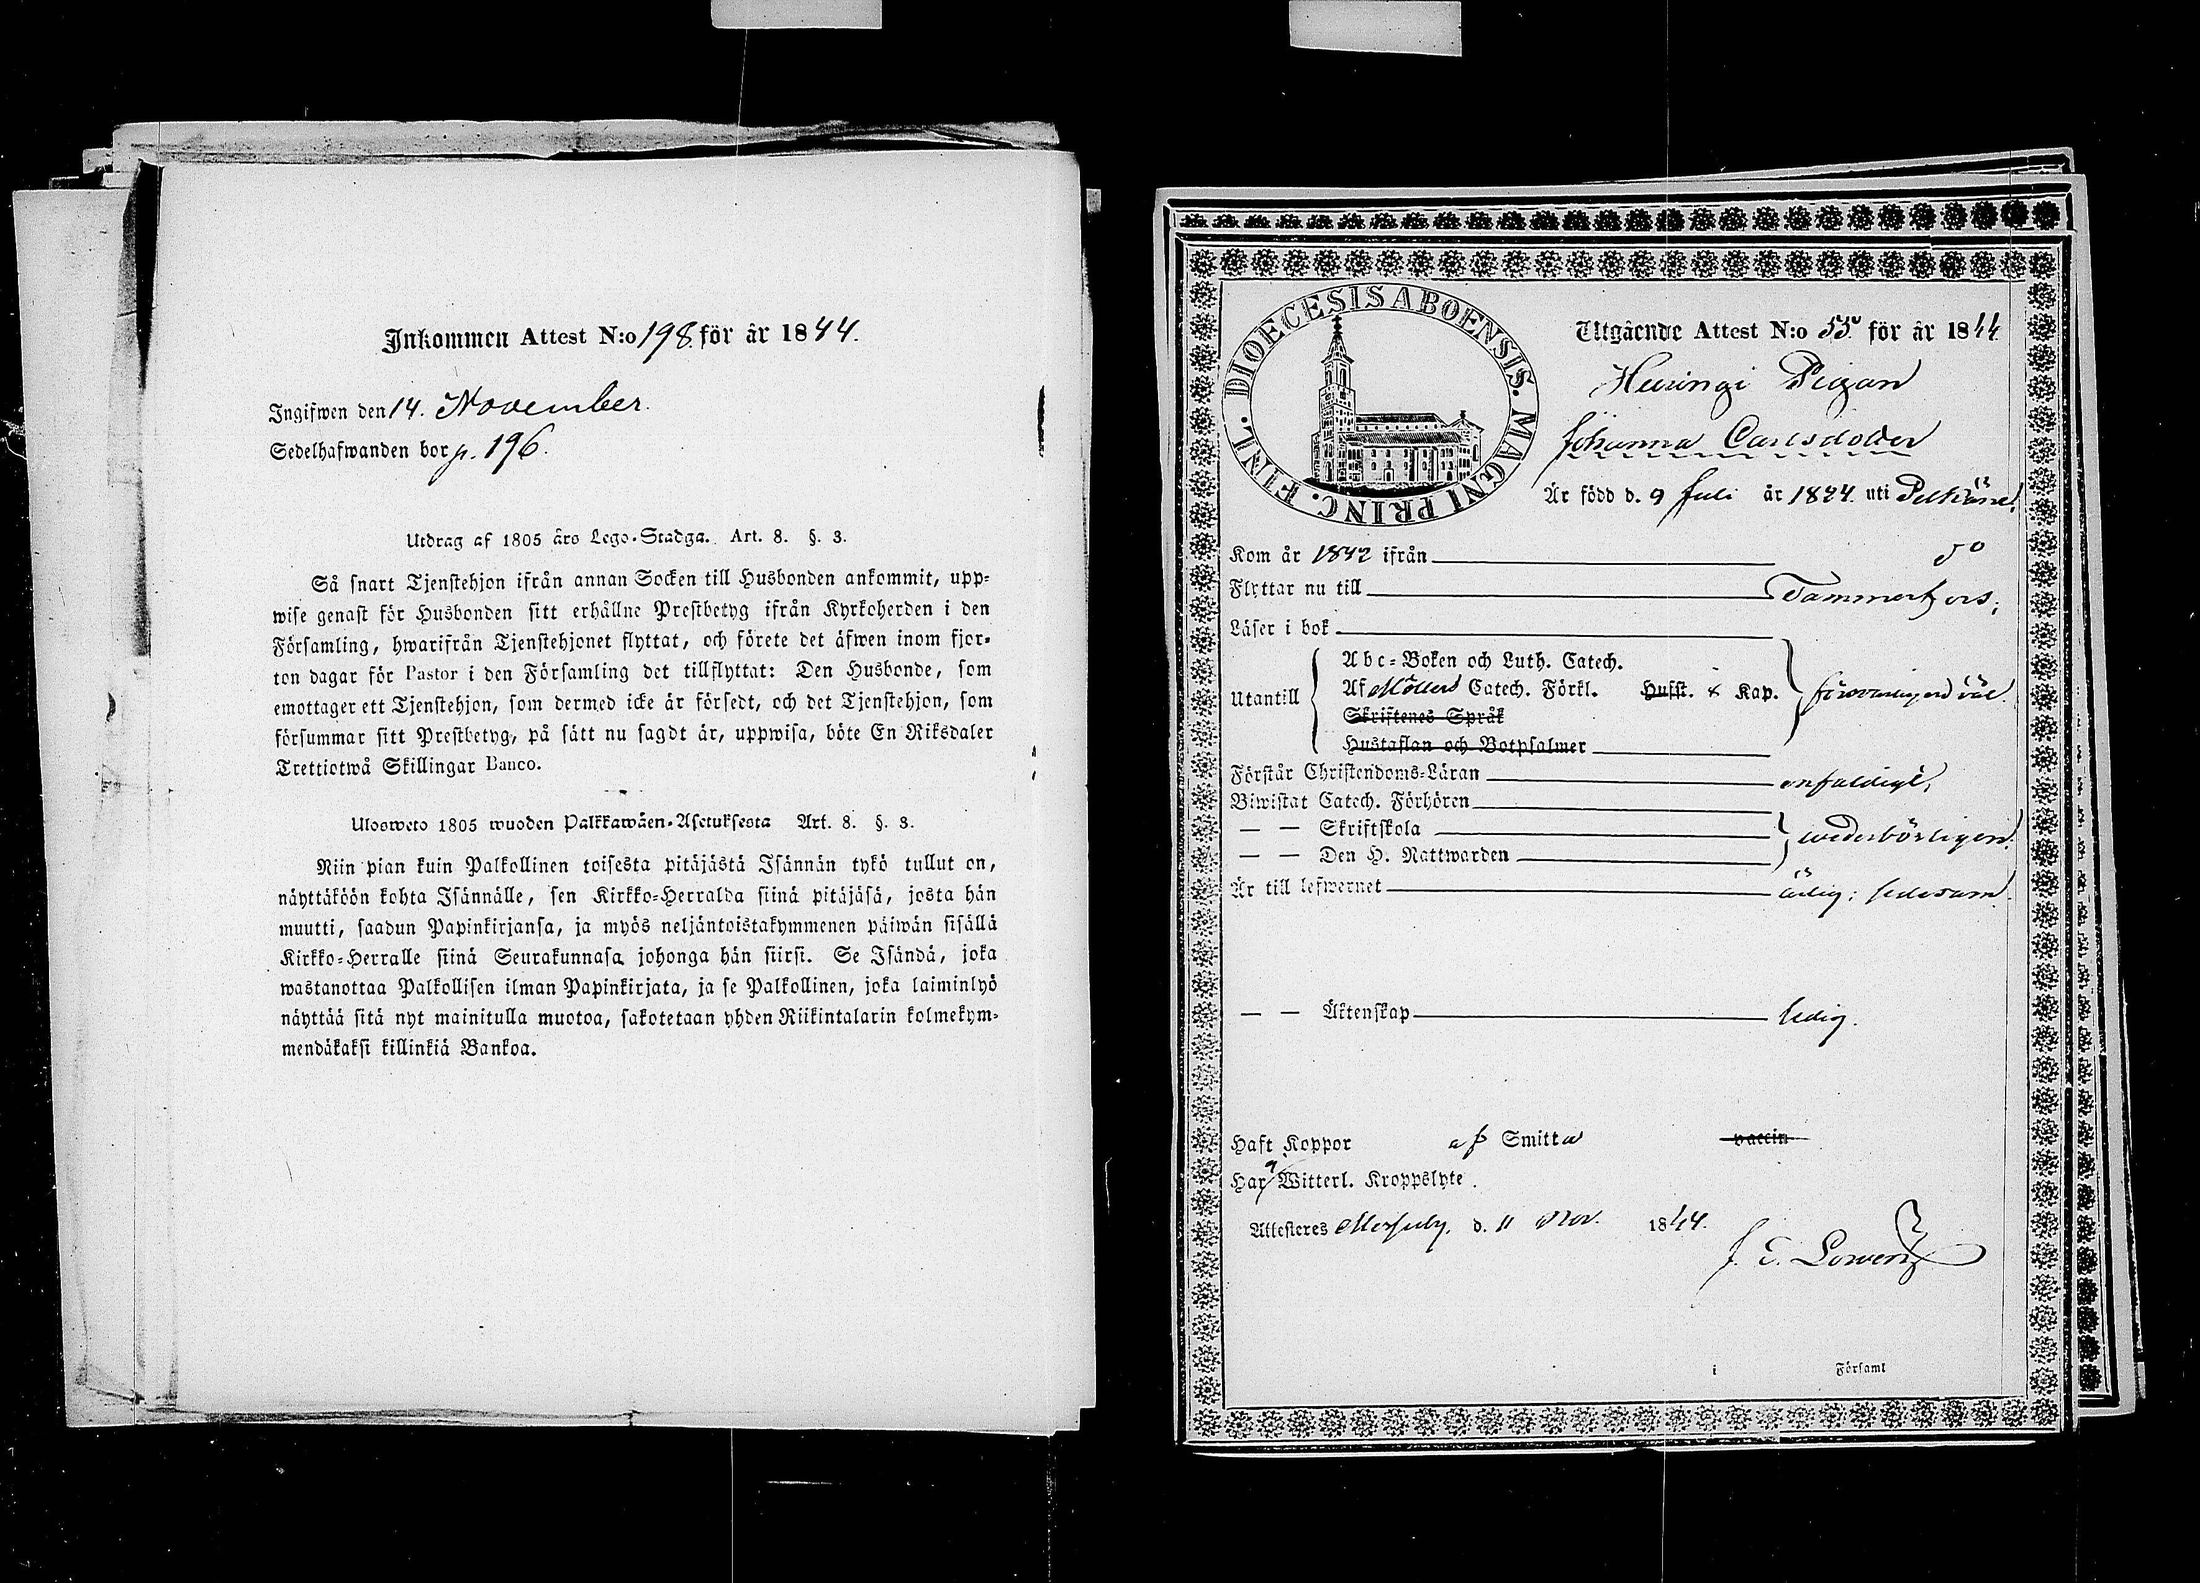 Inkommen Attest N:o 198 för år 1844.
Ingifwen den 14. November.
Sedelhafwanden bor p. 196.
Utdrag af 1805 års Lego-Stadga. Art. 8. §. 3.
Så snart Tjenstehjon ifrån annan Socken till Husbonden ankommit, upp-
wise genast för Husbonden sitt erhållne Prestbetyg ifrån Kyrkoherden i den
Församling, hwarifrån Tjenstehjonet flyttat, och förete det äfwen inom fjor-
ton dagar för Pastor i den Församling det tillflyttat: Den Husbonde, som
emottager ett Tjenstehjon, som dermed icke är försedt, och det Tjenstehjon, som
försummar sitt Prestbetyg, på sätt nu sagdt är, uppwisa, böte En Riksdaler
Trettiotwå Skillingar Banco.
Ulosweto 1805 wuoden Palkkawäen-Asetuksesta Art. 8. §. 3.
Niin pian kuin Palkollinen toisesta pitäjästä Isännän tykö tullut on,
näyttäköön kohta Isännälle, sen Kirkko-Herralda siinä pitäjäsä, josta hän
muutti, saadun Papinkirjansa, ja myös neljäntoistakymmenen päiwän sisällä
Kirkko-Herralle siinä Seurakunnasa johonga hän siirsi. Se Isändä, joka
wastanottaa Palkollisen ilman Papinkirjata, ja se Palkollinen, joka laiminlyö
näyttää sitä nyt mainitulla muotoa, sakotetaan yhden Riikintalarin kolmekym-
mendäkaksi killinkiä Bankoa.
DIOECESIS ABOENSIS. MAGNI PRINC. FINL.
Utgående Attest N:o 55 för år 1844
Pigan
Johanna Carlsdotter
Är född d. 9 Juli år 1824 uti Pelkäne.
Kom år 1842 ifrån d:o
Flyttar nu till Tammerfors;
Läser i bok
Abc-Boken och Luth. Catech.
Utantill Af Möllers Catech. Förkl. Husst. Kap. försvarligen väl
Skriftenes Språk
Hustaflan och Botpsalmer
Förstår Christendoms-Läran enfaldigt;
Biwistat Catech. Förhören
— — Skriftskola wederbörligen.
— — Den H. Nattwarden
Är till lefwernet ärlig; sedesam.
— — Äktenskap ledig.
Haft Koppor af Smitta vaccin
Har Witterl. Kroppslyte.
Attesteres d. 11 Nov. 1844.
i Församl